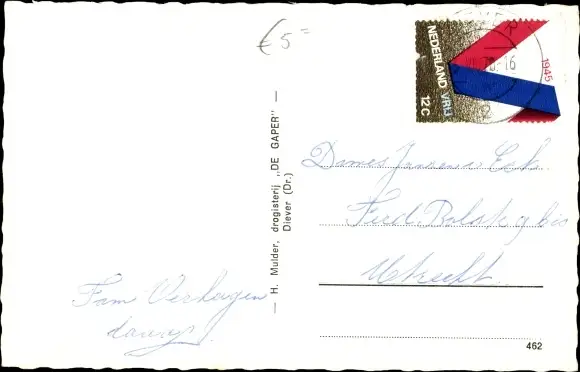 €5=
NEDERLAND VRIJ
12c
1945
70.-16
— H. Mulder, drogisterij „DE GAPER” —
Diever (Dr.)
Dames
Ferd. Bolstr
Utrecht.
Fam Verhagen
462